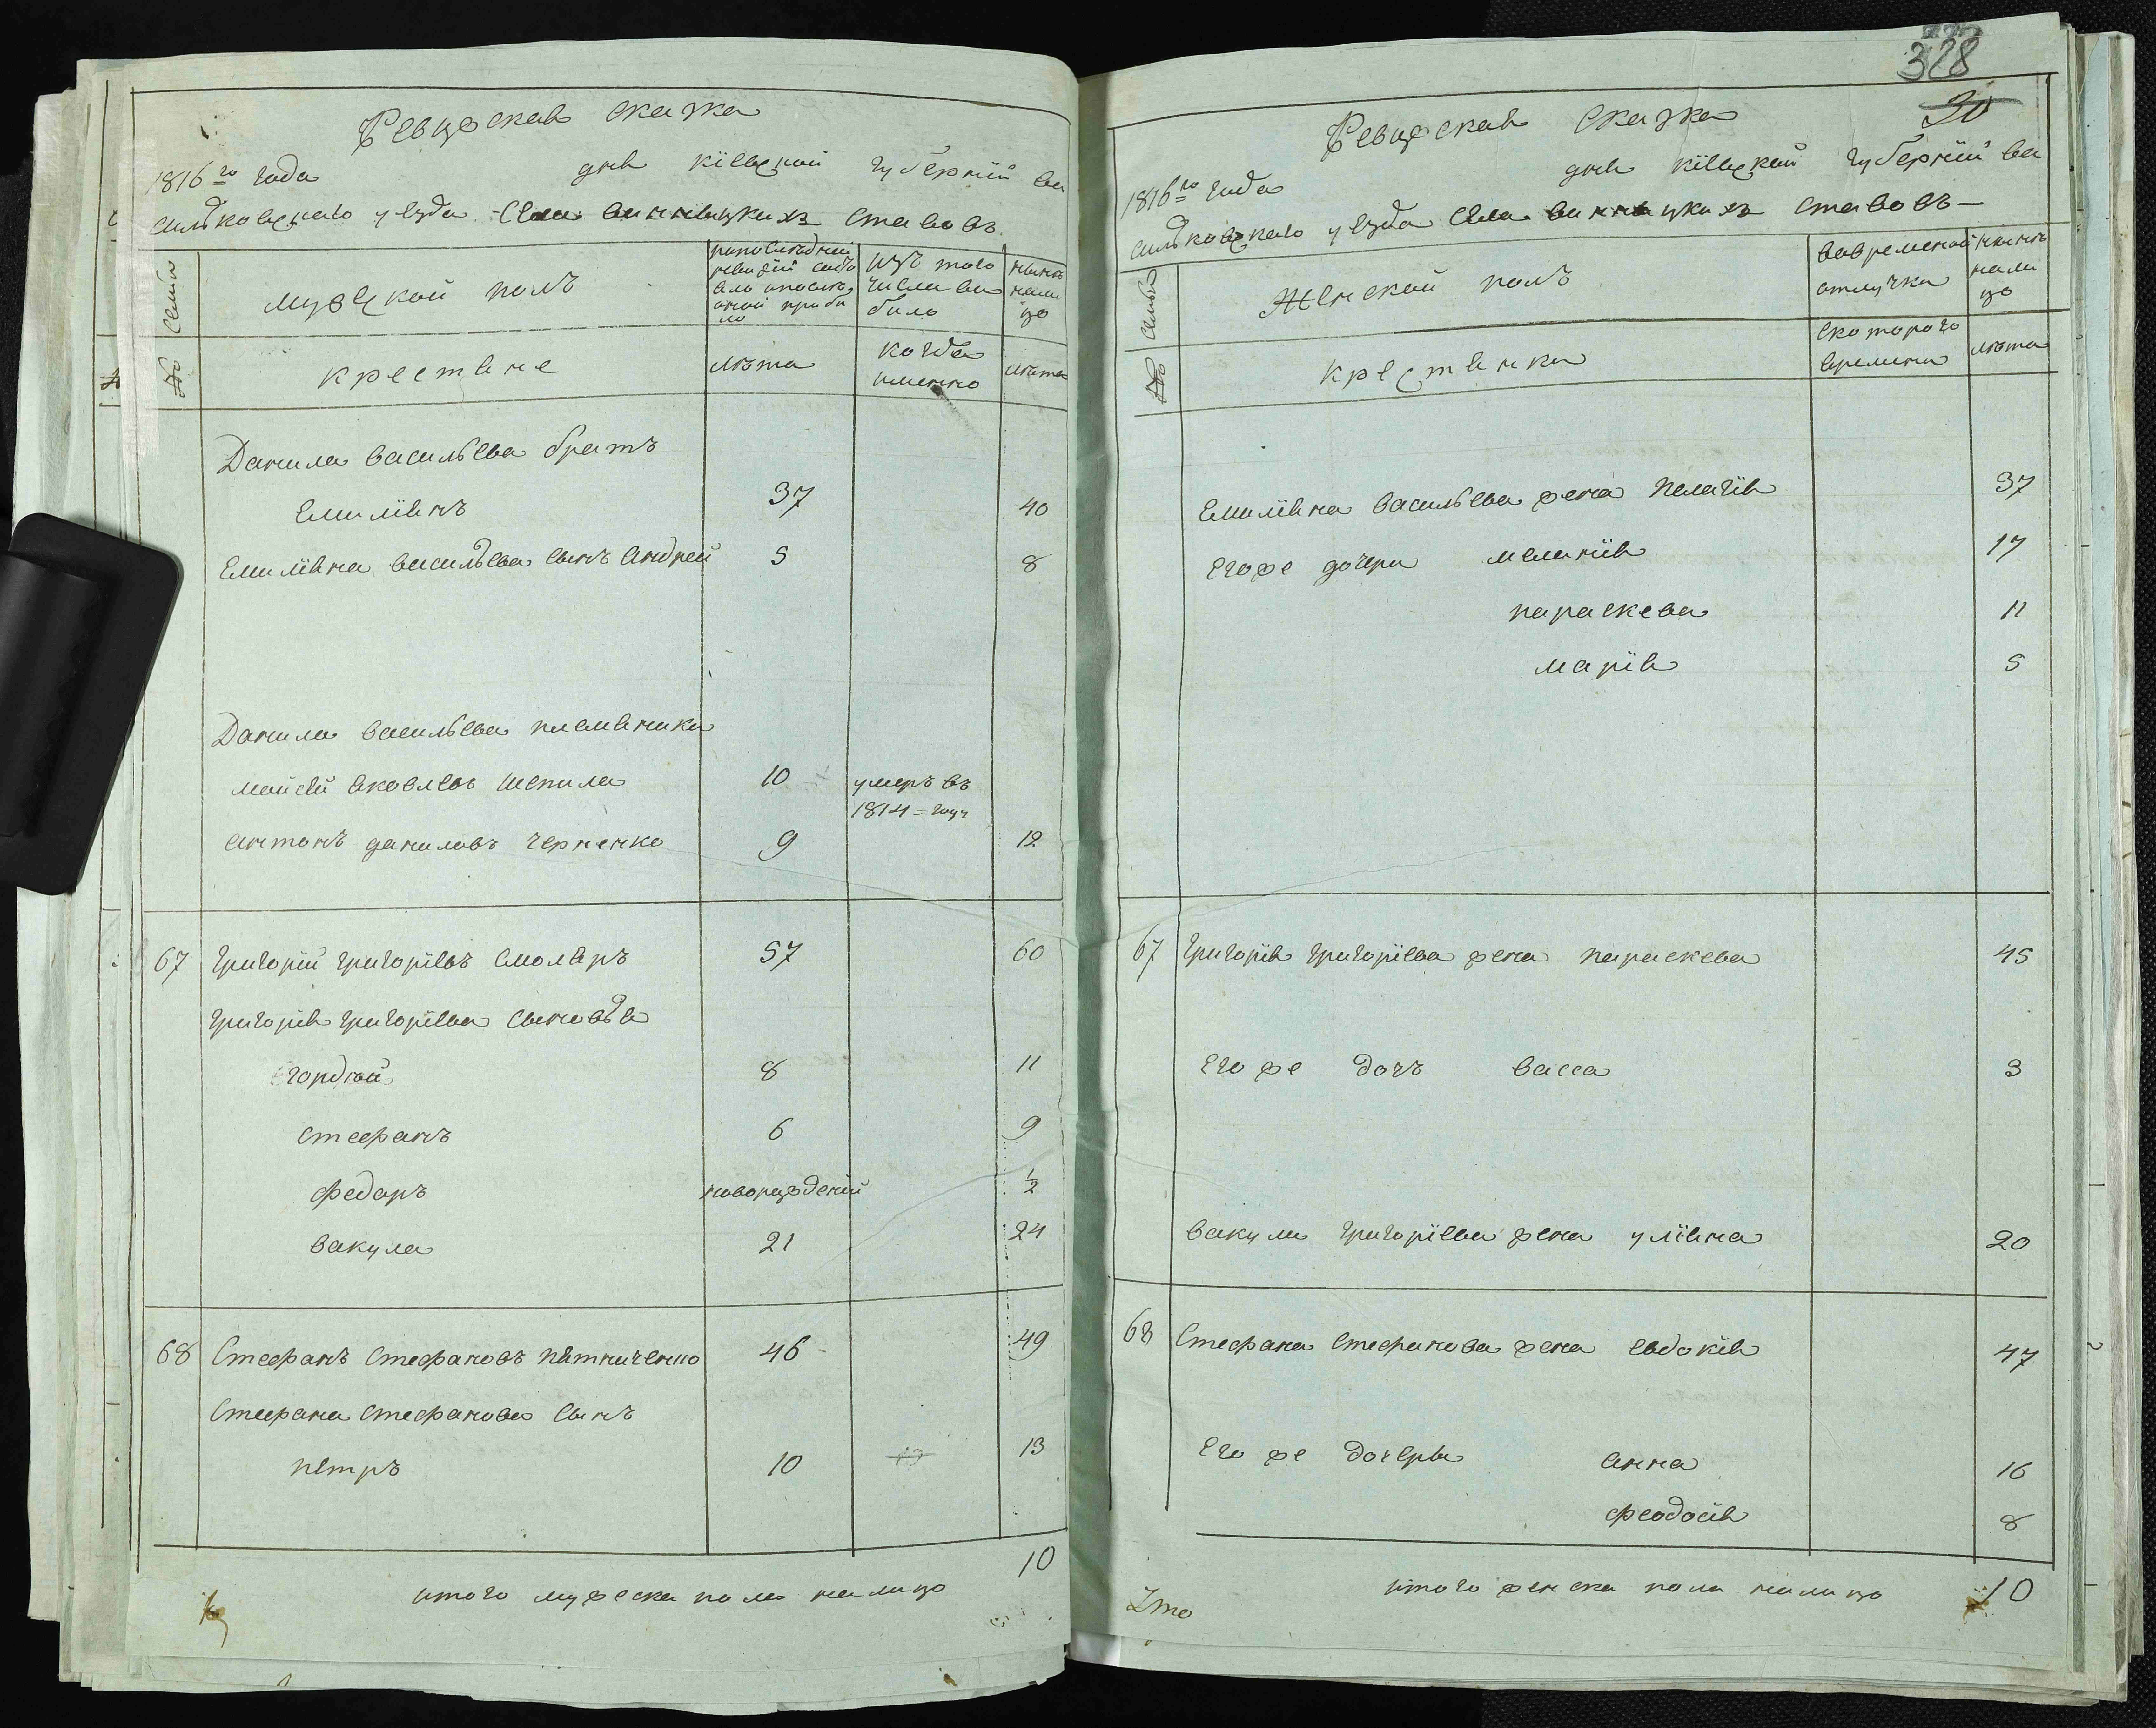 Ревижская сказка
1816го года дня кіевской губерніи ва
сильковскаго уезда села винницкихъ ставовъ
№ Семьи
мужеской полъ
изъ того
числа вы
было
ныне
нали
цо
крестяне
лѣта
когда
именно
лѣта
Данила васильева братъ
Емиліянъ 37 40
Емиліяна васильева сынъ андрей 5 8
Данила васильева племяники
мойсей яковлевъ шепила 10 умеръ въ
1814 = году
антонъ даниловъ черненко 9 12
67 григорій григоріевъ смоляръ 57 60
григорія григоріева сыновья
гордѣй 8 11
стефанъ 6 9
федоръ новорожденій 1/2
вакула 21 24
68 Стефанъ стефановъ пятниченко 46 49
Стефана стефанова сынъ
петръ 10 13
итого мужеска пола налицо 10
328
30
Ревижская сказка
1816го года дня кіевской губерніи ва
сильковскаго уезда села винницкихъ ставовъ
№ Семьи
Женской полъ
вовременой
отлучки
ныне
нали
цо
крестянки
скоторого
времени
лѣта
Емиліяна васильева жена пелагія 37
Егоже дочери меланія 17
параскева 11
марія 5
67 григорія григоріева жена параскева 45
Его же дочъ васса 3
вакули григоріева жена уліяна 20
68 Стефана стефанова жена евдокія 47
Его же дочеры анна 16
феодосія 8
итого женска пола налицо 10